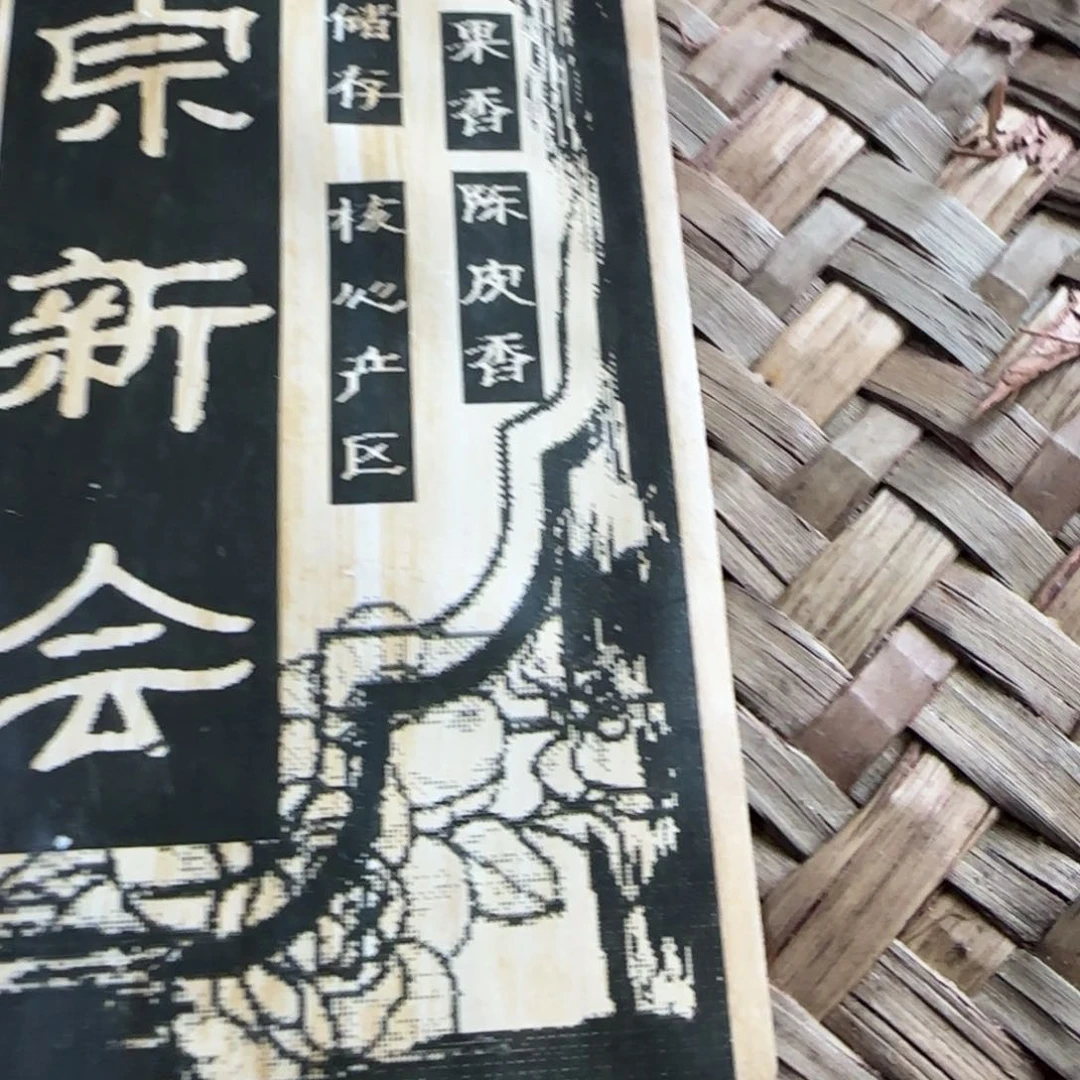 宗新会
储存
核心产区
果香
陈皮香